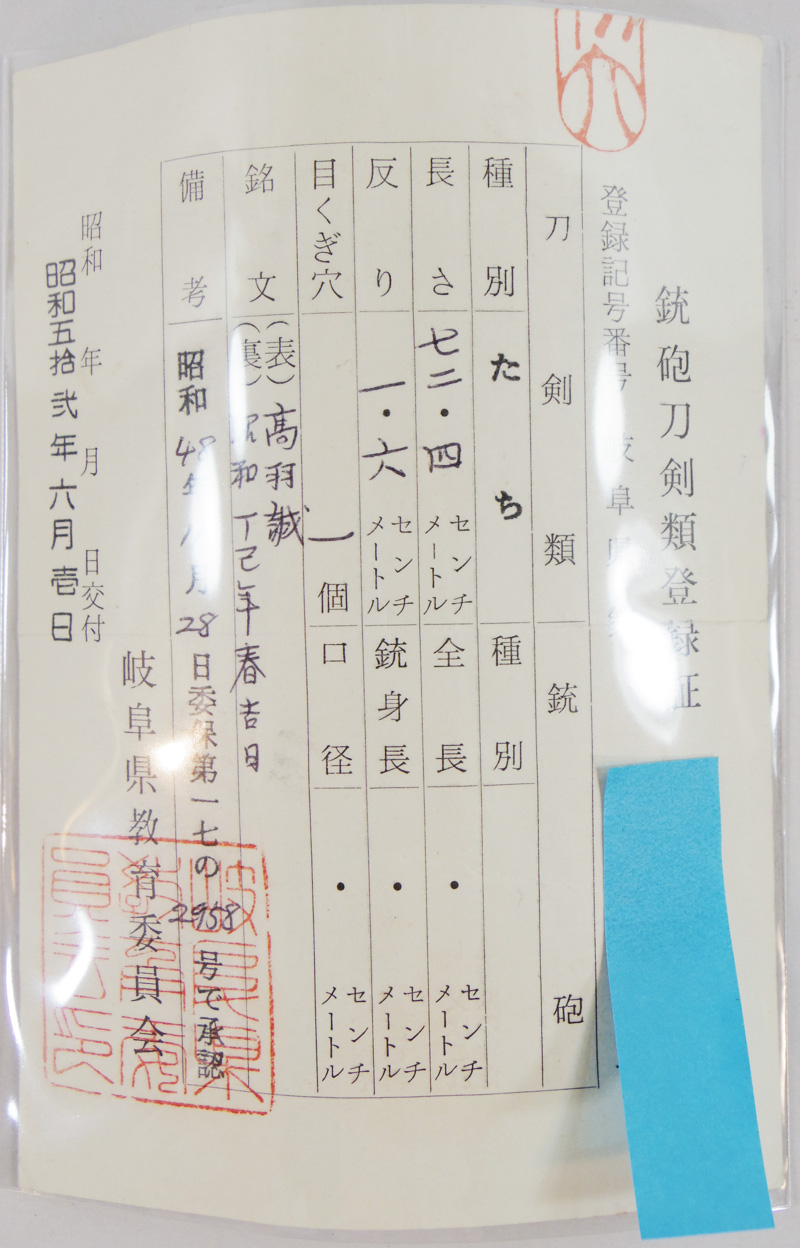 銃砲刀剣類登録証
登録記号番号 岐阜県
刀剣類
種別 たち
長さ 七二・四 センチメートル
反り 一・六 センチメートル
目くぎ穴 一個
銘文 (表) 高羽誠
(裏) 昭和丁己年春吉日
備考 昭和48年 月28日委保第一七の2958号で承認
銃砲
種別
全長 ・ センチメートル
銃身長 ・ センチメートル
口径 ・ センチメートル
昭和 年 月 日交付
昭和五拾弐年六月壱日
岐阜県教育委員会